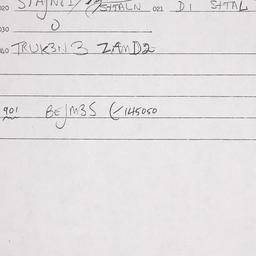 020 STAJNCI/ SHTALN 021 DI SHTAL
030 O
040 TRUK3N3 ZAMD2
901 BEJM3S (145050